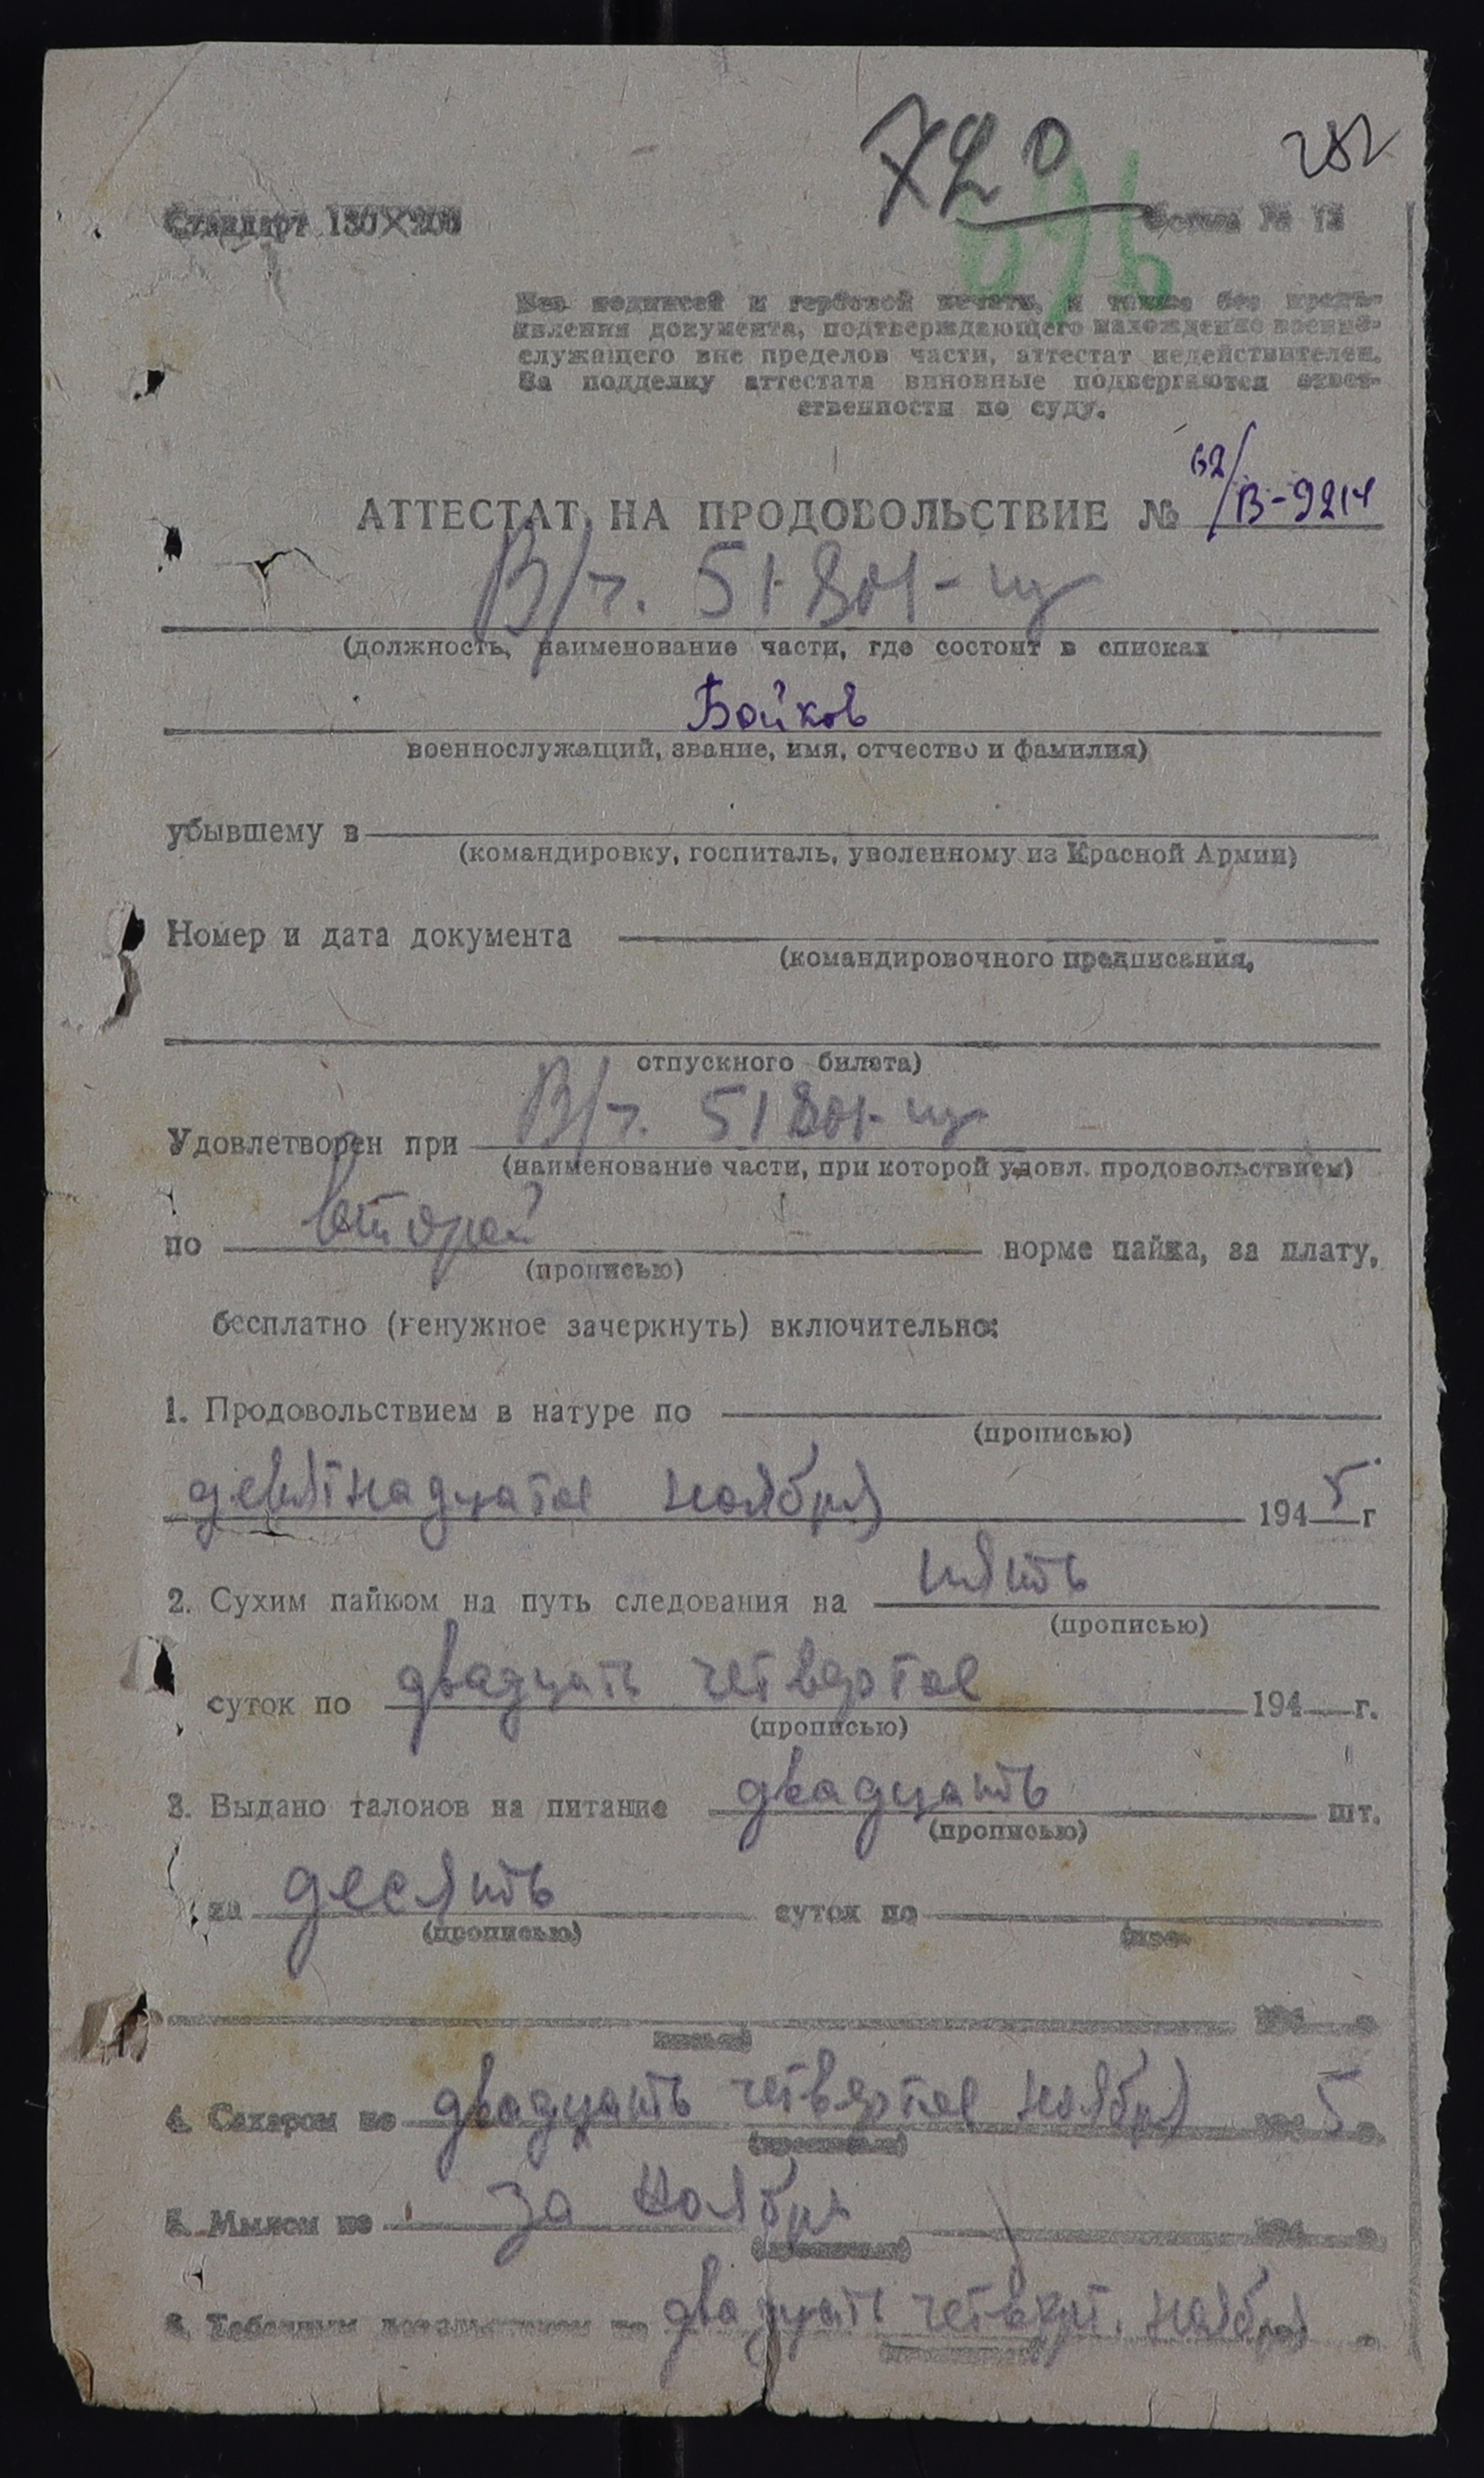 720
282
696
Стандарт 130×200
Форма № 12
Без подписей и гербовой печати, а также без предъ-
явления документа, подтверждающего нахождение военно-
служащего вне пределов части, аттестат недействителен.
За подделку аттестата виновные подвергаются ответ-
ственности по суду.
АТТЕСТАТ НА ПРОДОВОЛЬСТВИЕ № 62/В-9214
В/ч. 51801-ц
(должность, наименование части, где состоит в списках
Бойков
военнослужащий, звание, имя, отчество и фамилия)
убывшему в
(командировку, госпиталь, уволенному из Красной Армии)
Номер и дата документа
(командировочного предписания,
отпускного билета)
Удовлетворен при В/ч. 51801-ц
(наименование части, при которой удовл. продовольствием)
по второй норме пайка, за плату,
(прописью)
бесплатно (ненужное зачеркнуть) включительно:
1. Продовольствием в натуре по
(прописью)
девятнадцатое ноября 1945 г
2. Сухим пайком на путь следования на пять
(прописью)
суток по двадцать четвертое 194 г.
(прописью)
3. Выдано талонов на питание двадцать шт.
(прописью)
на десять суток по
(прописью) (про-
писью) 194 г.
4. Сахаром по двадцать четвертое ноября 1945 г.
(прописью)
5. Мылом по за ноябрь 194 г.
(прописью)
6. Табачным довольствием по двадцать четверт. ноября
(прописью)